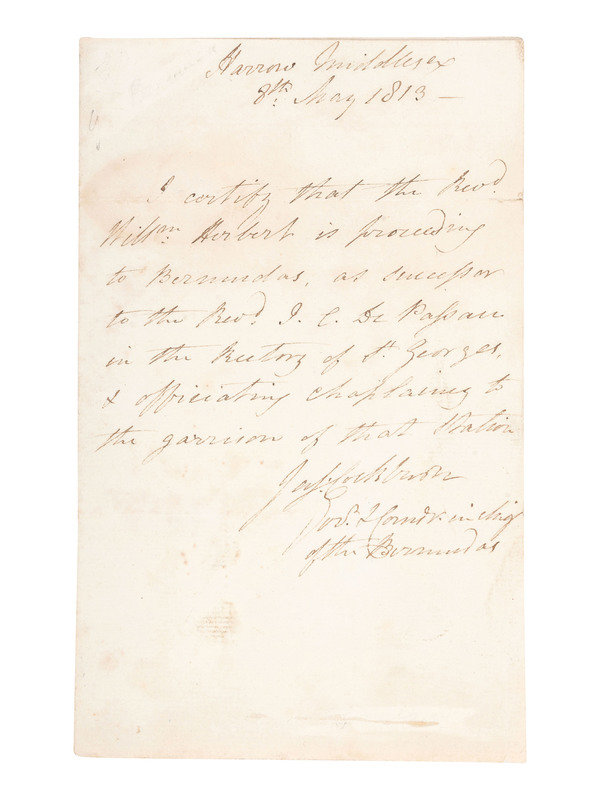 Harrow Middlesex
8th. May 1813 —
I certify that the Revd.
Willm. Herbert is proceeding
to Bermudas, as successor
to the Revd. J. C. De Passau
in the Rectory of St. Georges,
& officiating chaplaincy to
the garrison of that Station
Jas. Cockburn
Govr. & Comdr. in chief
of the Bermudas